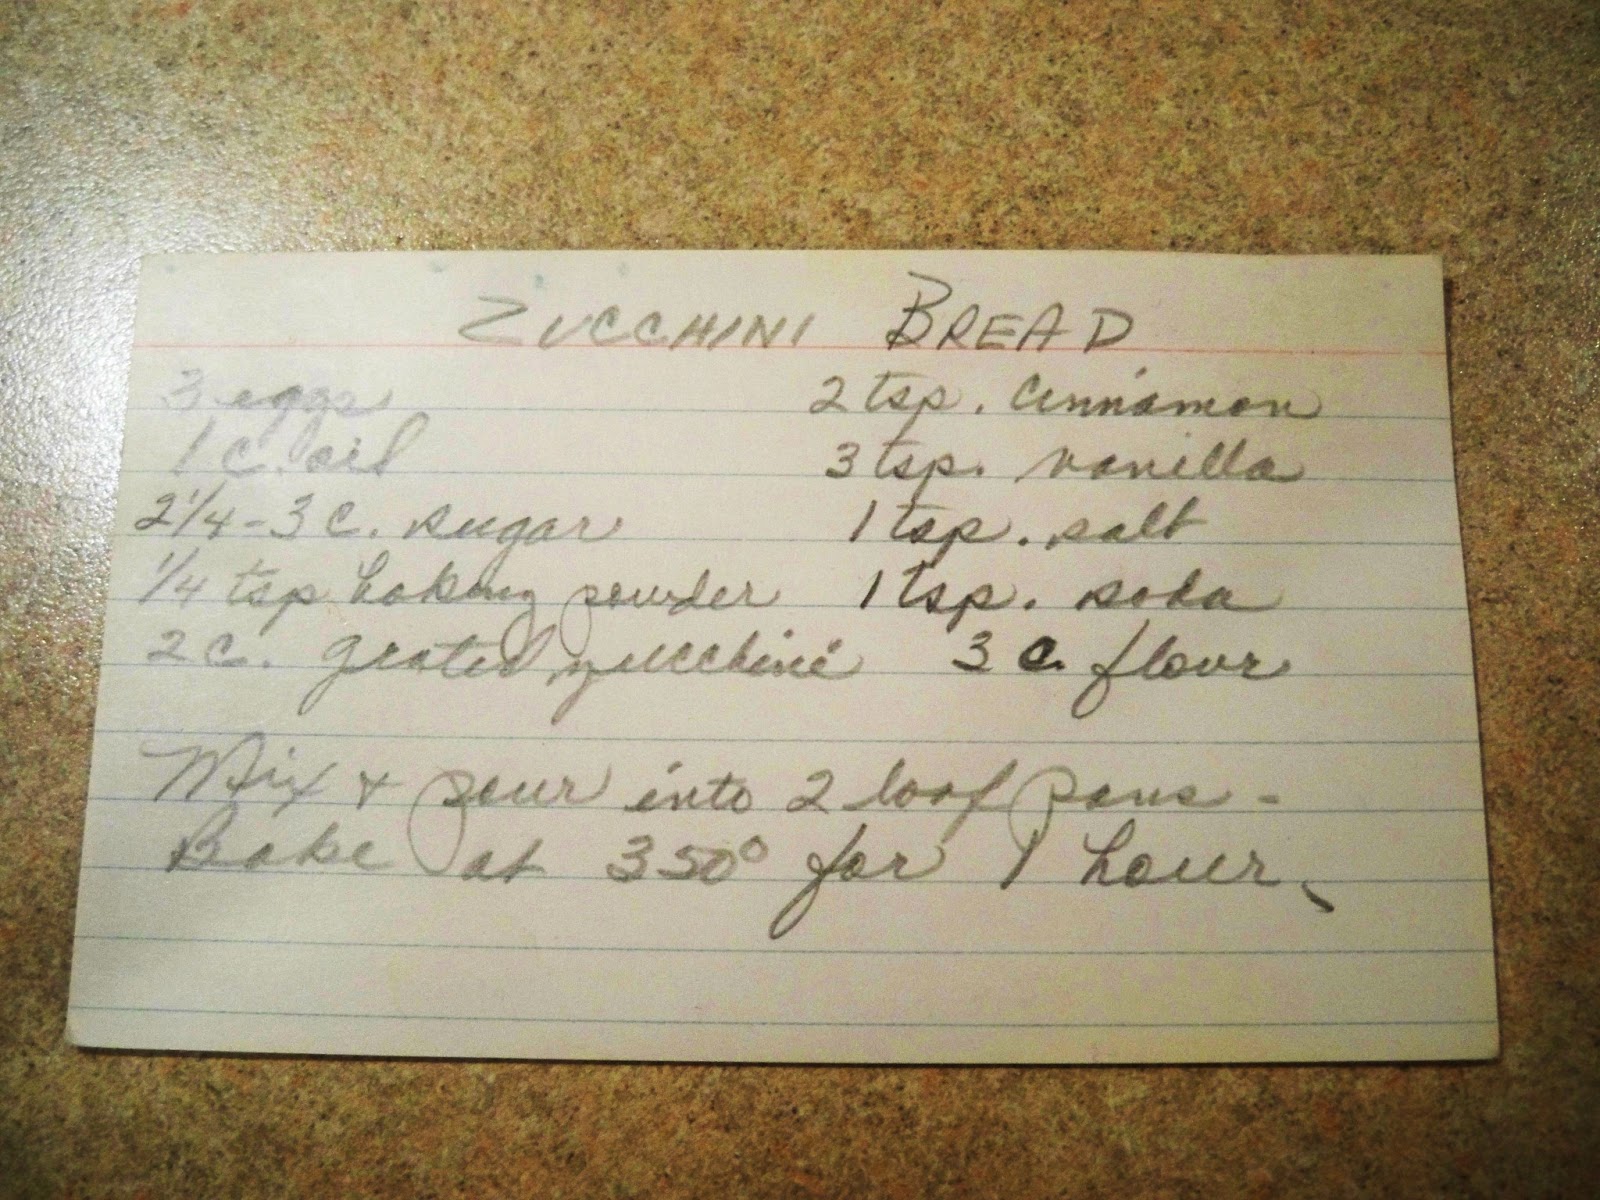 ZUCCHINI BREAD
3 eggs 2 tsp. cinnamon
1 c. oil 3 tsp. vanilla
2 1/4 - 3 c. sugar 1 tsp. salt
1/4 tsp baking powder 1 tsp. soda
2 c. grated zucchini 3 c. flour
Mix & pour into 2 loaf pans -
Bake at 350° for 1 hour.